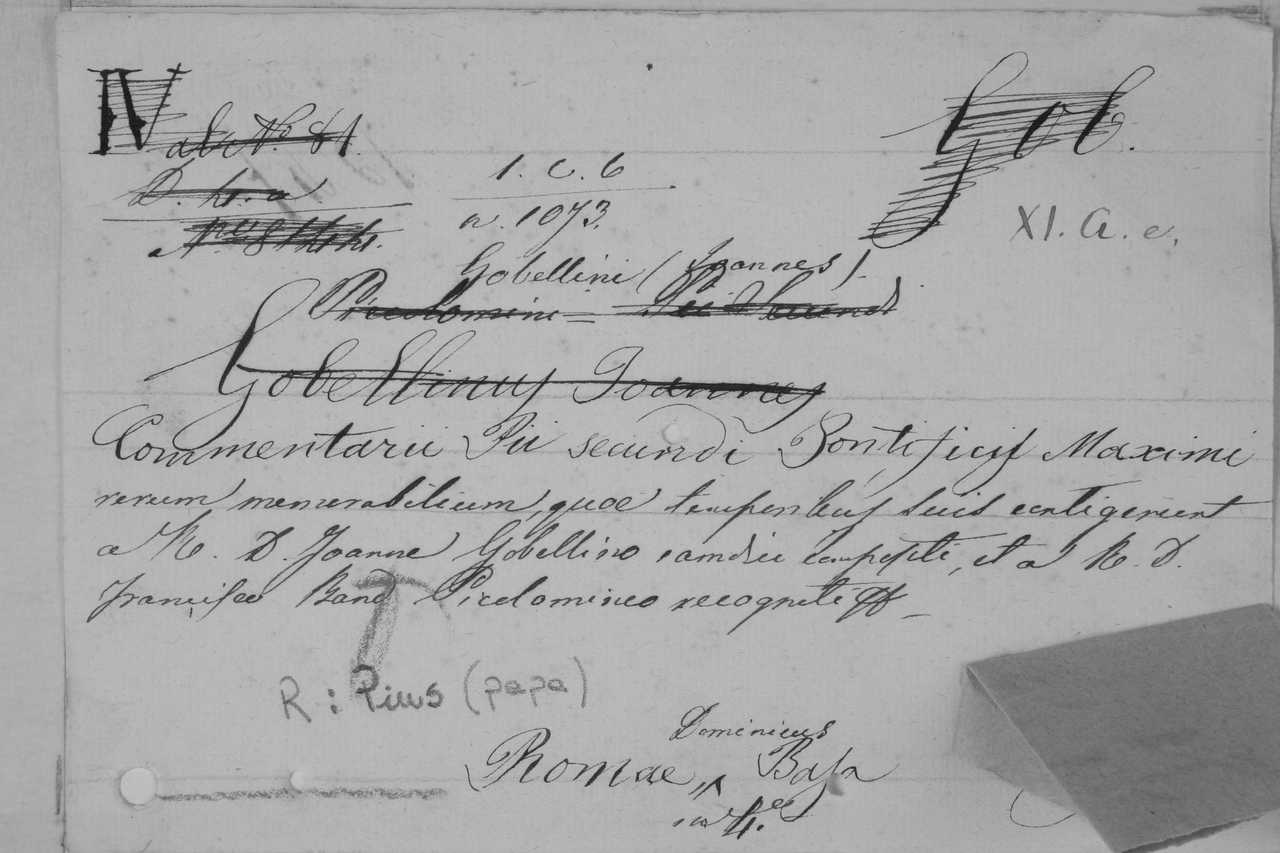 IV Gob.
ab No. 81
D. h. a 1. C. 6
n. 1073. XI. A. e.
Gobellini (Joannes).
Piccolomini = Pii Secundi
Gobellinus Joannes
Commentarii Pii secundi Pontificis Maximi
rerum memorabilium, quae temporibus suis contigerunt
a R. D. Joanne Gobellino iamdiu compositi, et a R. D.
Francisco Band Piccolomineo recogniti
T
R: Pius (papa)
Dominicus
Romae, Basa
in 4.º